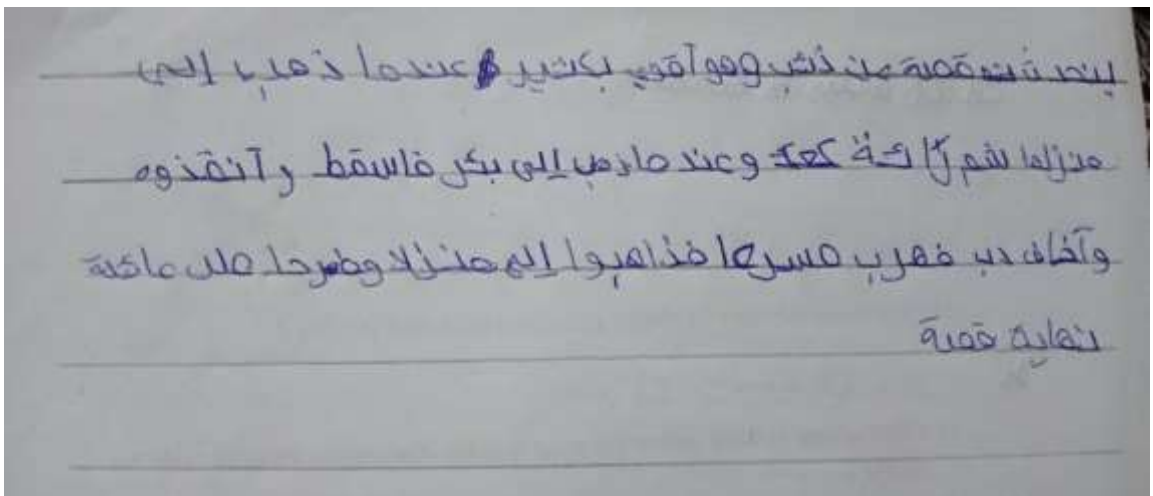 يتحدث قصة عن ذئب وهو آقوي بكتير عندما ذهب إلى
منزلها شم رائحة كعك وعند ماذهب إلى بئر فاسقط و آنقذوه
وآخاف دب فهرب مسرعا فذاهبوا إلى منزلا وطرحا على عائلة
نهاية قصة